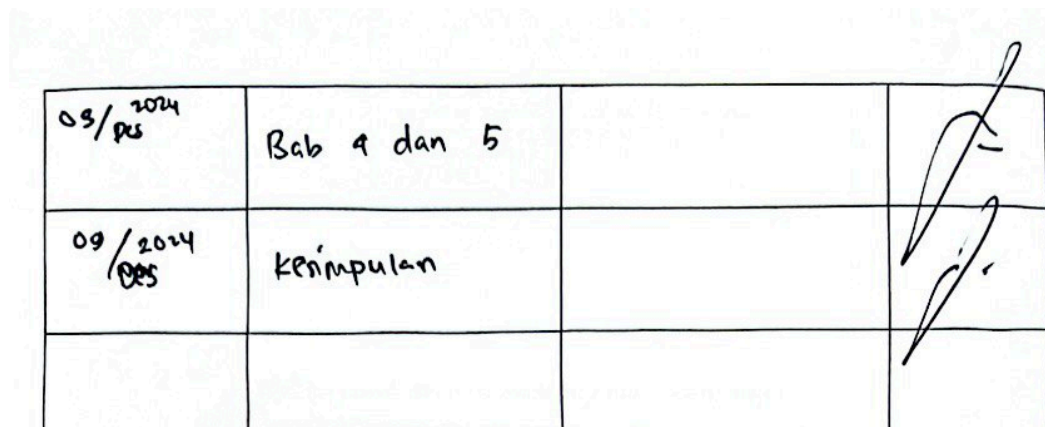 05/Des 2024
Bab 4 dan 5
09/Des 2024
Kesimpulan